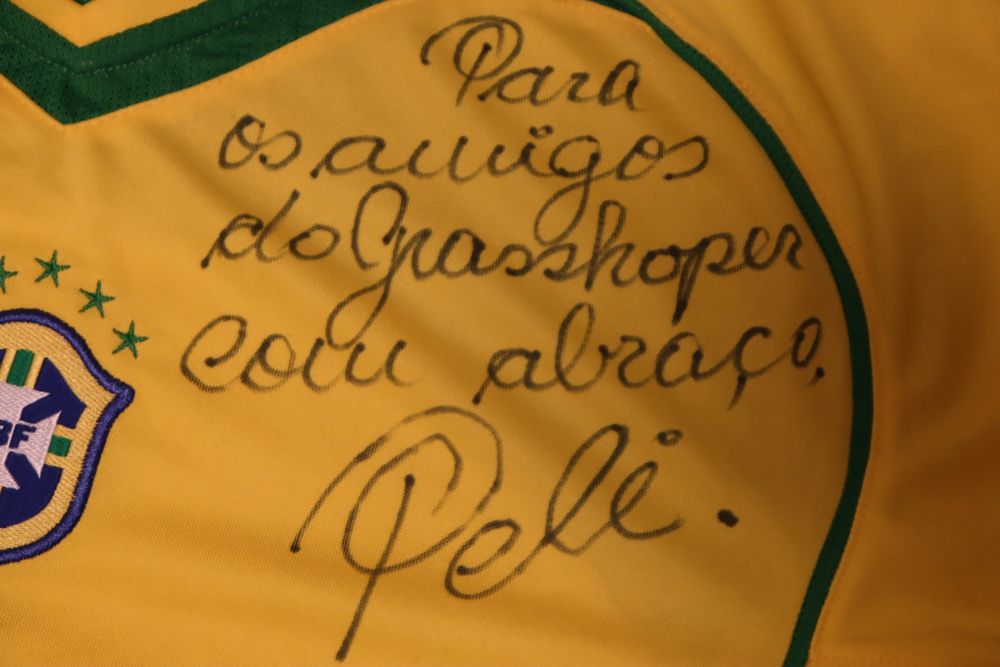 Para
os amigos
do Grasshoper
com abraço,
Pelé.
BF